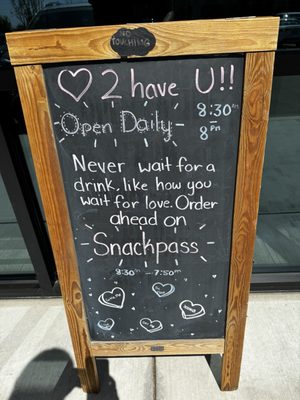 NO TOUCHING
♡ 2 have U!!
Open Daily
8:30am
–
8pm
Never wait for a
drink, like how you
wait for love. Order
ahead on
Snackpass
8:30am – 7:50pm